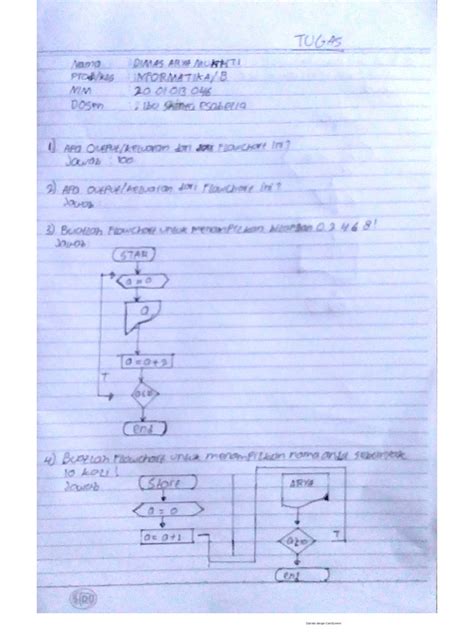 TUGAS
Nama : DIMAS ARYA MUKHTI
Prodi/kls : INFORMATIKA/B
NIM : 20 01 013 046
Dosen : Ibu
1) Apa Output/keluaran dari Flowchart Ini?
Jawab : 100
2) Apa Output/keluaran dari Flowchart Ini?
Jawab :
3) Buatlah Flowchart untuk menampilkan bilangan 0 2 4 6 8!
Jawab
START
a = 0
a
a = a + 2
T
end
4) Buatlah Flowchart untuk menampilkan nama anda sebanyak
10 kali!
Jawab
Start
a = 0
a = a + 1
ARYA
T
end